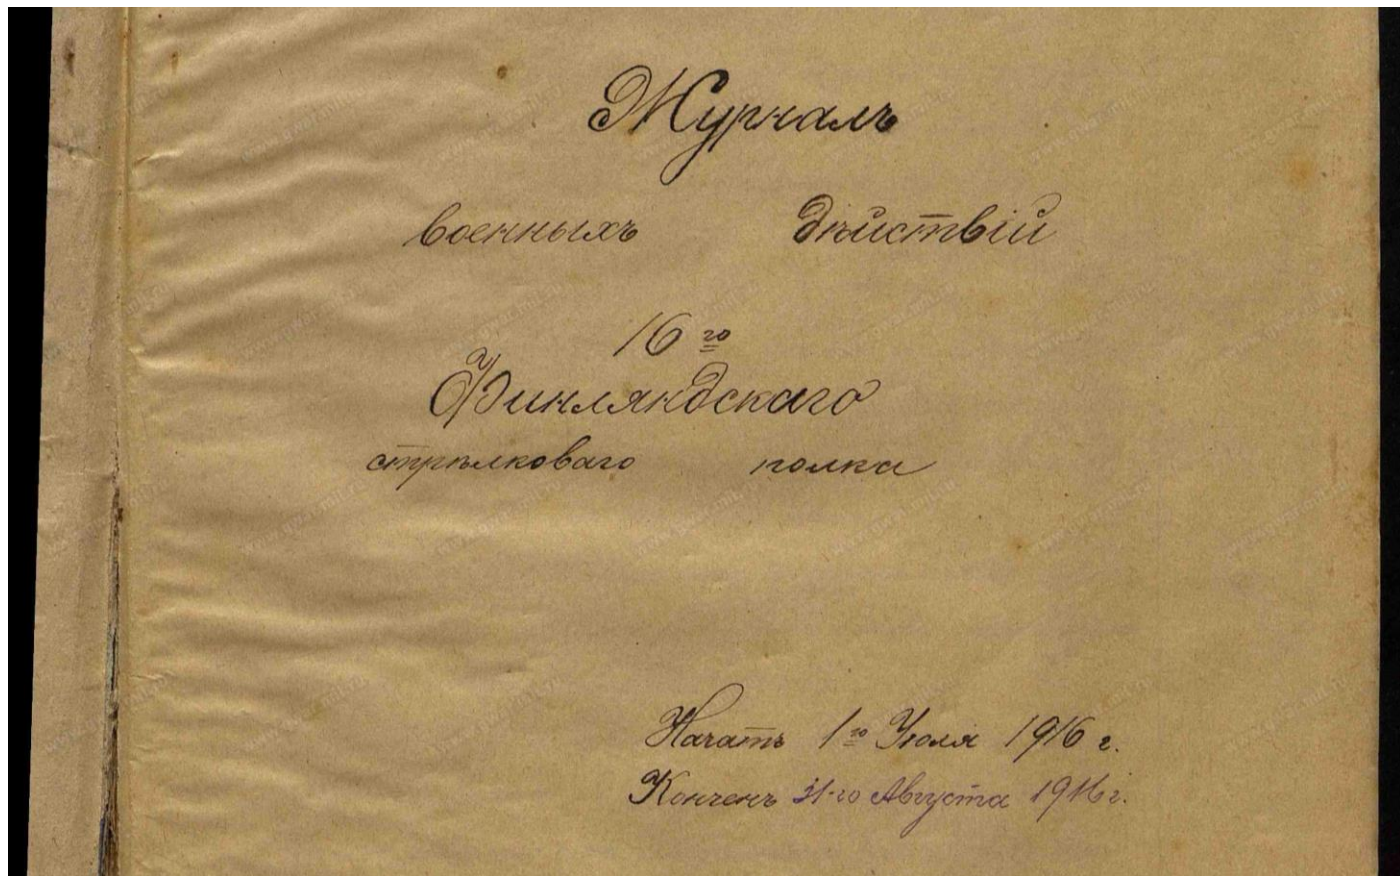 Журналъ
военныхъ дѣйствій
16го
Финляндскаго
стрѣлковаго полка
Начатъ 1го Іюля 1916 г.
Конченъ 31-го Августа 1916 г.